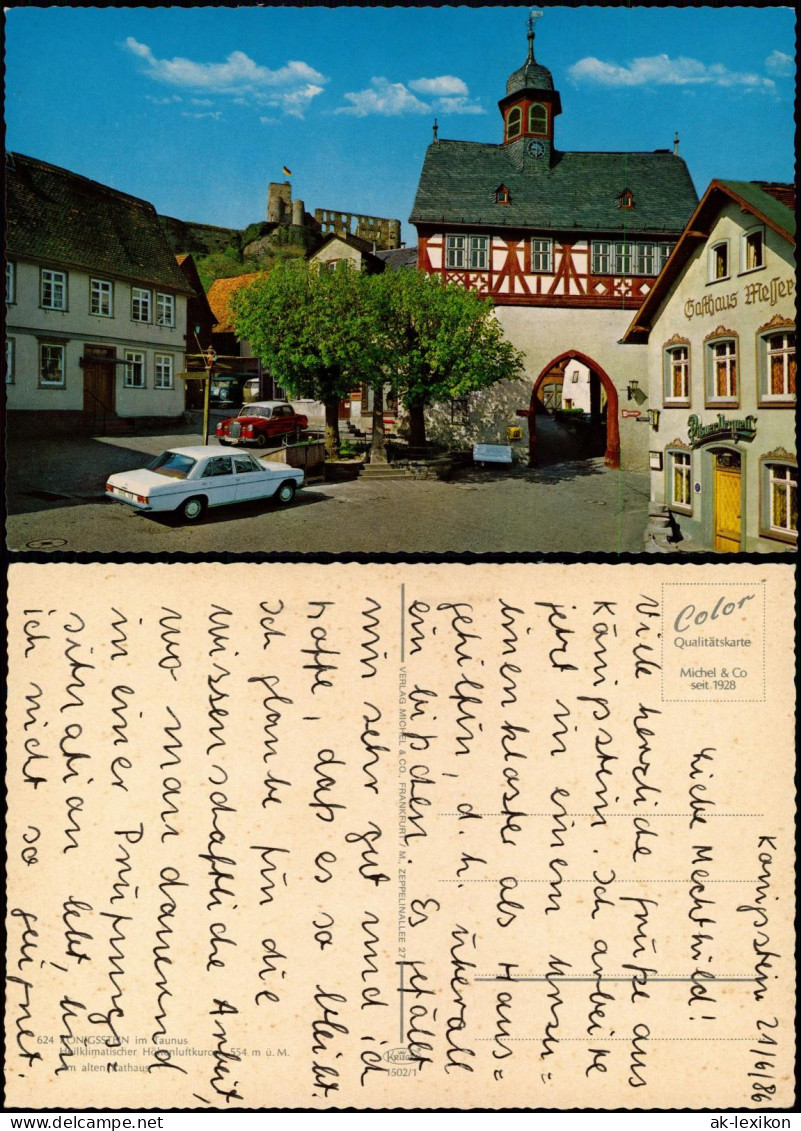 Gasthaus Messer
Königstein 21/6/86
Liebe Mechthild!
Viele herzliche Grüße aus
Königstein. Ich arbeite
jetzt in einem Ursu=
linenkloster als Haus=
gehilfin, d.h. überall
ein bißchen. Es gefällt
mir sehr gut und ich
hoffe, daß es so bleibt.
Ich glaube für die
wissenschaftliche Arbeit,
wo man dauernd
in einer Prüfungs=
situation lebt, bin
ich nicht so geeignet.
Color
Qualitätskarte
Michel & Co
seit 1928
VERLAG MICHEL & CO., FRANKFURT / M., ZEPPELINALLEE 27
624 KÖNIGSSTEIN im Taunus
Heilklimatischer Höhenluftkurort, 554 m ü. M.
Am alten Rathaus
Krüger
1502/1
ak-lexikon